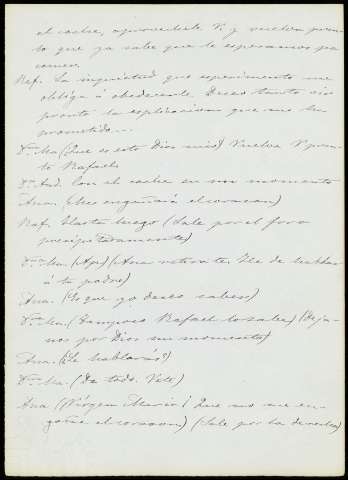 el coche, aprovechele V. y vuelva pron-
to que ya sabe que le esperamos pa
comer.
Raf. La inquietud que esperimento me
obliga á obedecerle. Deseo tanto oir
pronto la esplicacion que me ha
prometido...
D.ª Ma. (Que es esto Dios mio) Vuelva V. pron-
to Rafael.
D.n And. Con el coche es un momento
Ana. (Me engañará el corazon)
Raf. Hasta luego (Sale por el foro
precipitadamente)
D.ª Ma. (Ap.) (Ana retirate. He de hablar
á tu padre)
Ana. (Lo que yo deseo saber)
D.ª Ma. (Tampoco Rafael lo sabe) (Deja-
nos por Dios un momento)
Ana. (Le hablarás?)
D.ª Ma. (De todo. Vete)
Ana (¡Vírgen María! Que no me en-
gañe el corazon) (Sale por la derecha)